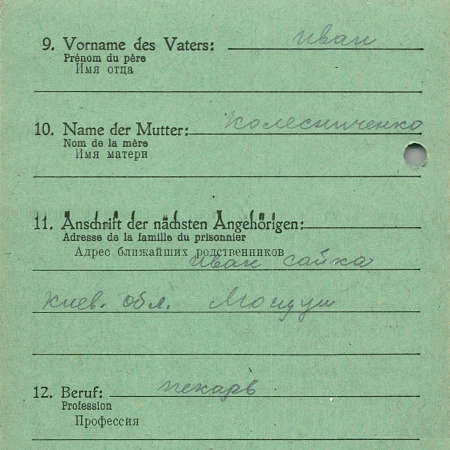 9. Vorname des Vaters: иван
Prénom du père
Имя отца
10. Name der Mutter: Колесниченко
Nom de la mère
Имя матери
11. Anschrift der nächsten Angehörigen:
Adresse de la famille du prisonnier
Адрес ближайших родственников
иван сайка
Киев. обл.
12. Beruf: пекарь
Profession
Профессия